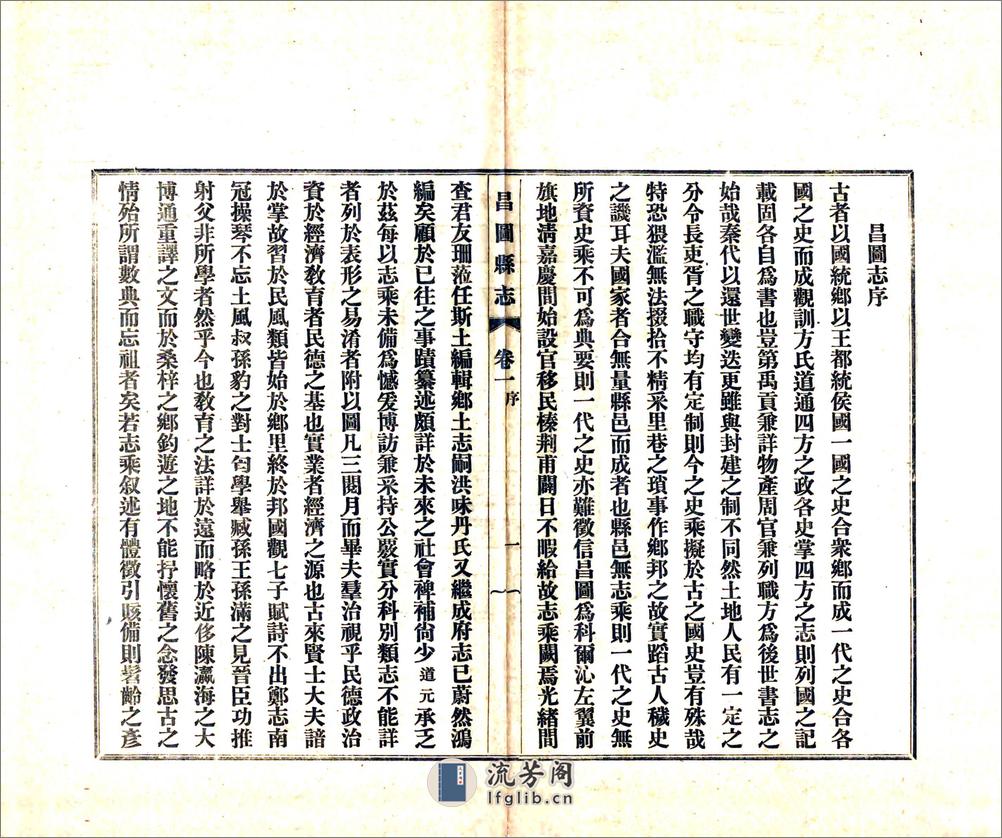 昌圖志序
古者以國統鄉以王都統侯國一國之史合衆鄉而成一代之史合各
國之史而成觀訓方氏道通四方之政各史掌四方之志則列國之記
載固各自爲書也豈第禹貢兼詳物產周官兼列職方爲後世書志之
始哉秦代以還世變迭更雖與封建之制不同然土地人民有一定之
分令長吏胥之職守均有定制則今之史乘擬於古之國史豈有殊哉
特恐猥濫無法掇拾不精采里巷之瑣事作鄉邦之故實蹈古人穢史
之譏耳夫國家者合無量縣邑而成者也縣邑無志乘則一代之史無
所資史乘不可爲典要則一代之史亦難徵信昌圖爲科爾沁左翼前
旗地淸嘉慶間始設官移民榛荆甫闢日不暇給故志乘闕焉光緒間
昌圖縣志 卷一 序 一
查君友珊蒞任斯土編輯鄉土志嗣洪味丹氏又繼成府志已蔚然鴻
編矣顧於已往之事蹟纂述頗詳於未來之社會裨補尙少道元承乏
於茲每以志乘未備爲憾爰博訪兼采持公覈實分科別類志不能詳
者列於表形之易淆者附以圖凡三閱月而畢夫羣治視乎民德政治
資於經濟敎育者民德之基也實業者經濟之源也古來賢士大夫諳
於掌故習於民風類皆始於鄉里終於邦國觀七子賦詩不出鄭志南
冠操琴不忘土風叔孫豹之對士匄學舉臧孫王孫滿之見晉臣功推
射父非所學者然乎今也敎育之法詳於遠而略於近侈陳瀛海之大
博通重譯之文而於桑梓之鄉釣遊之地不能抒懷舊之念發思古之
情殆所謂數典而忘祖者矣若志乘叙述有體徵引賅備則髫齡之彥
流芳阁
lfglib.cn